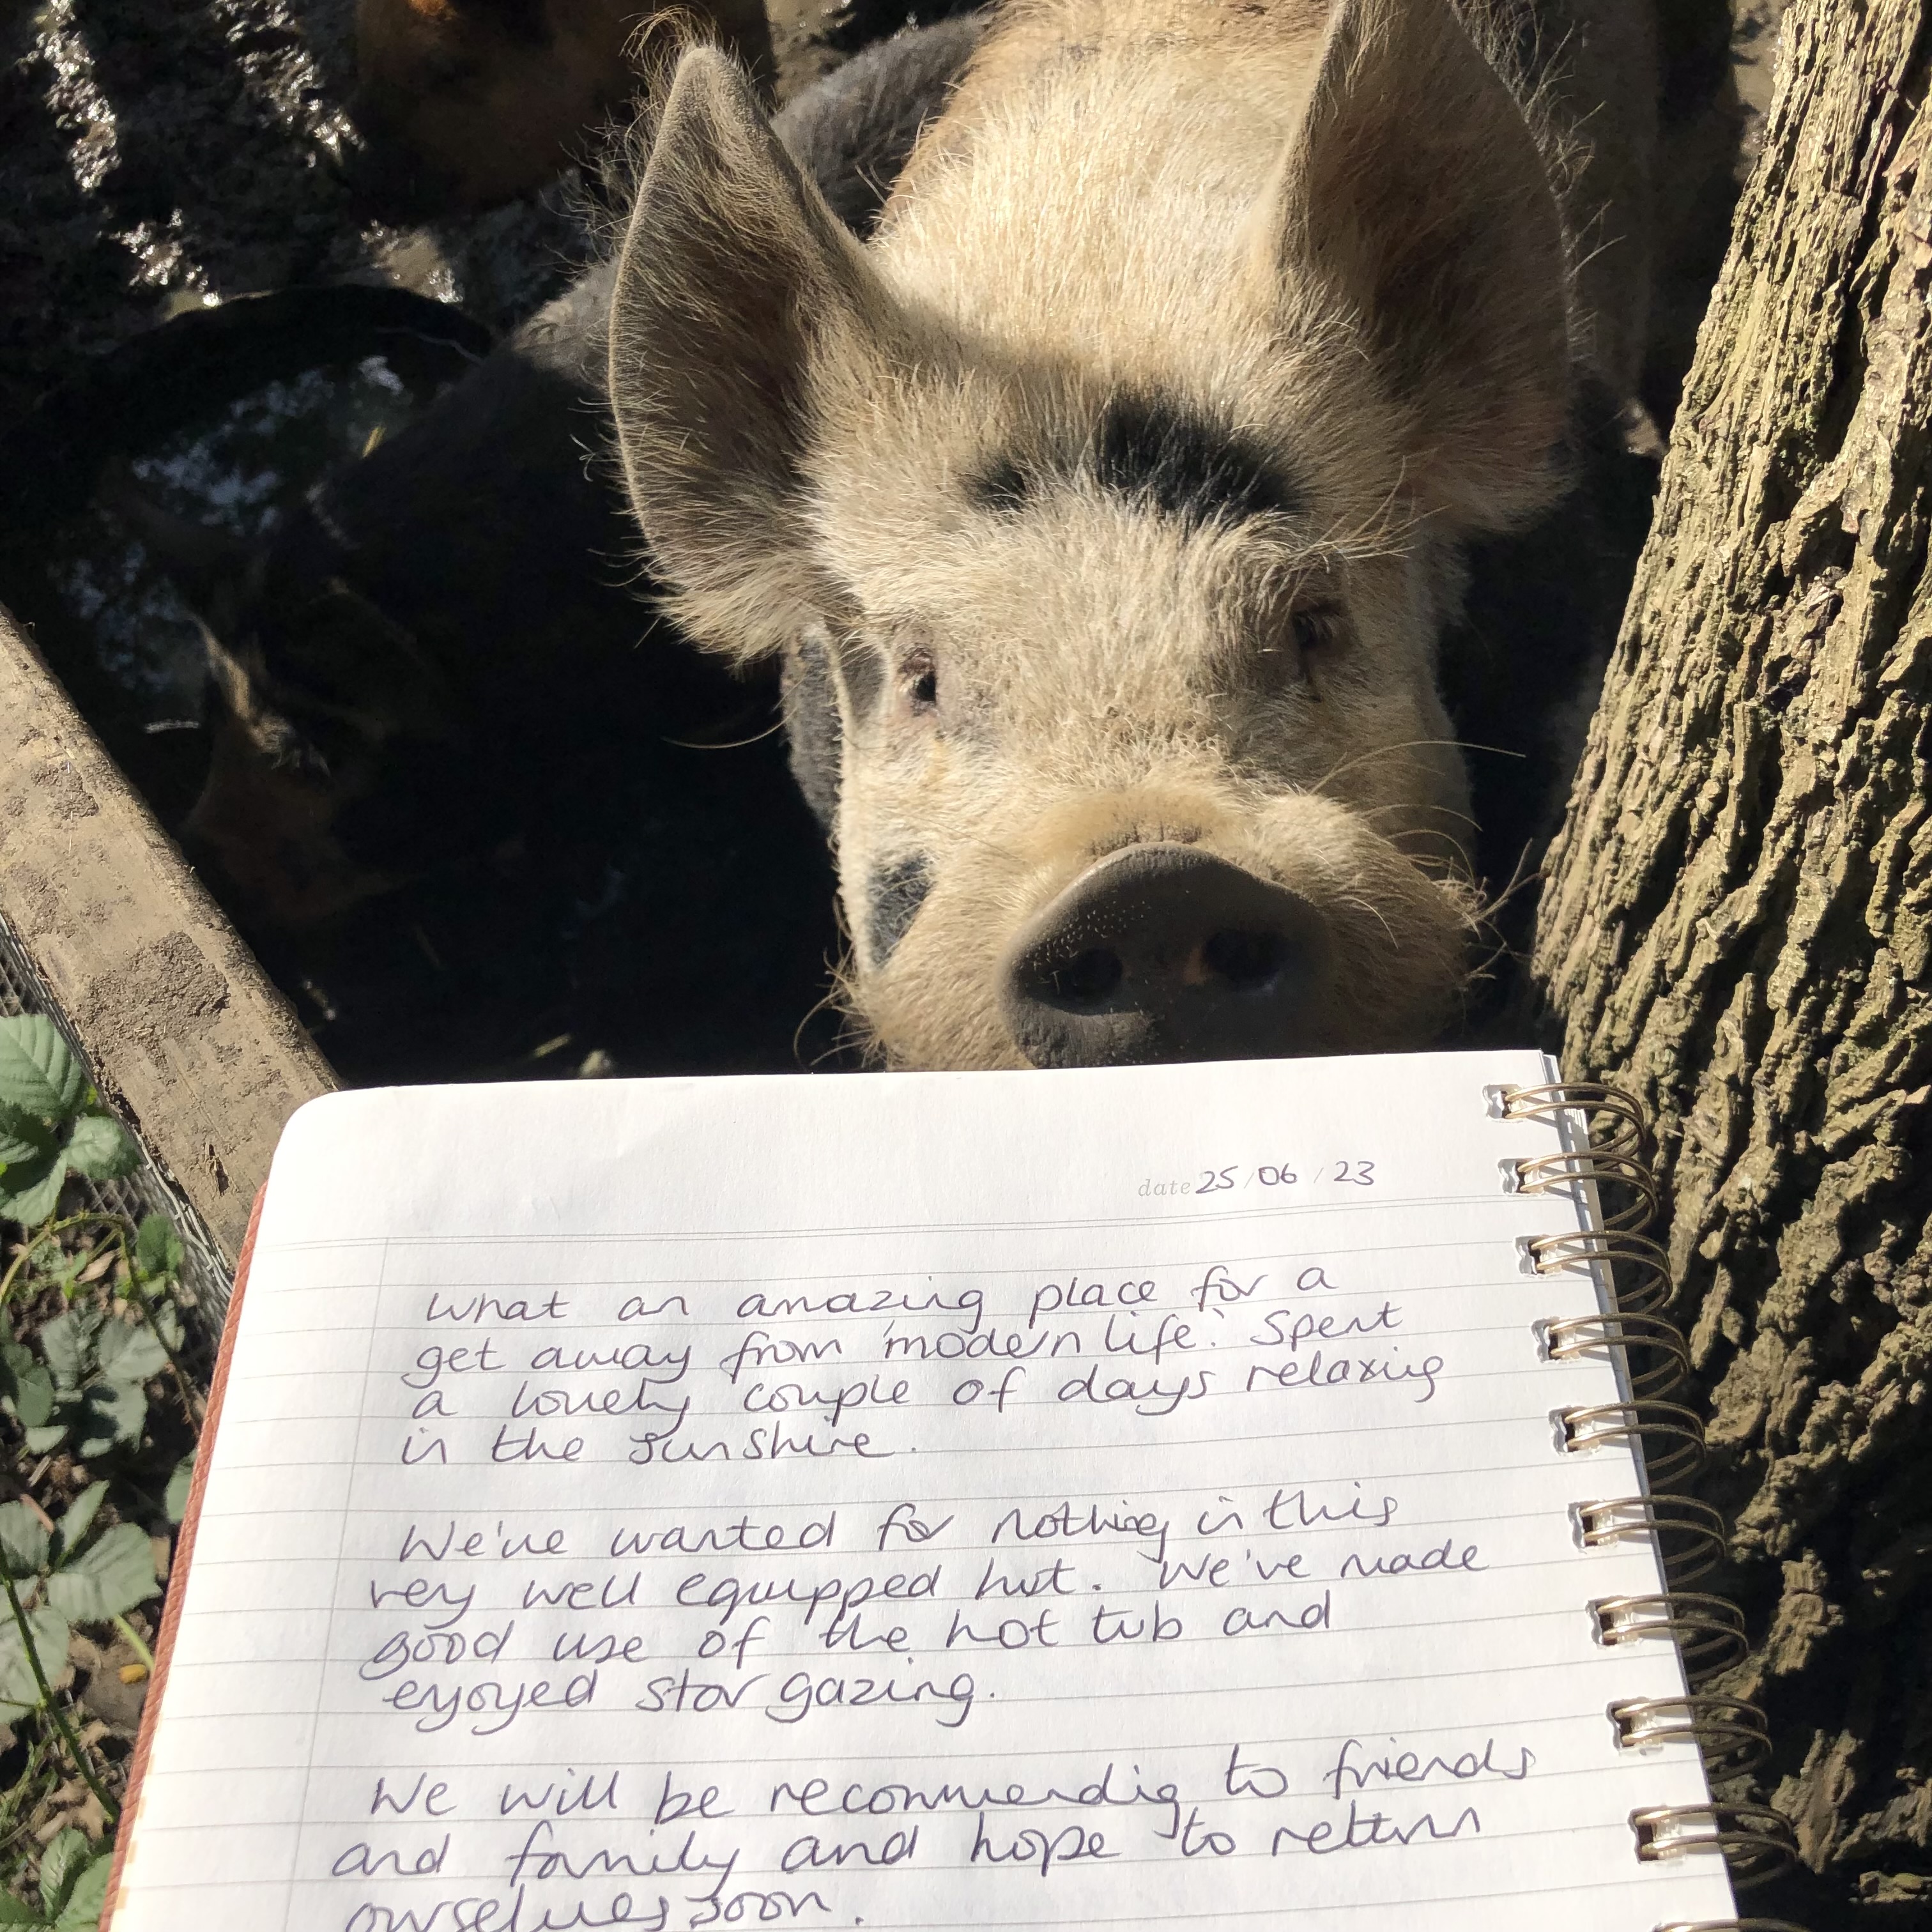 date 25/06/23
What an amazing place for a
get away from 'modern life'. Spent
a lovely couple of days relaxing
in the sunshine.
We've wanted for nothing in this
very well equipped hut. We've made
good use of the hot tub and
enjoyed star gazing.
We will be recommending to friends
and family and hope to return
ourselves soon.